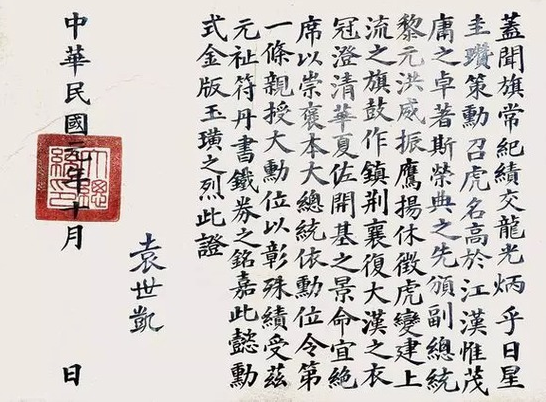 蓋聞旗常紀績交龍光炳乎日星
圭瓚策勳召虎名高於江漢惟茂
庸之卓著斯榮典之先頒副總統
黎元洪威振鷹揚休徵虎變建上
流之旗鼓作鎮荊襄復大漢之衣
冠澄清華夏佐開基之景命宜絕
席以崇褒本大總統依勳位令第
一條親授大勳位以彰殊績受茲
元祉符丹書鐵券之銘嘉此懿勳
式金版玉璜之烈此證
袁世凱
中華民國年十月 日
大總統印